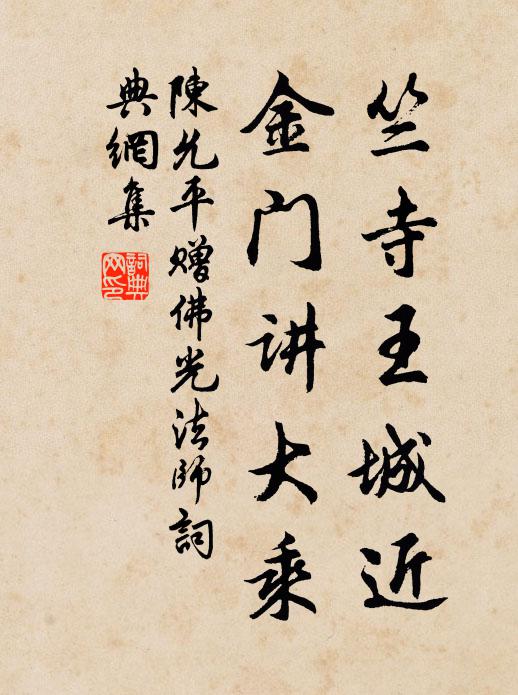 竺寺王城近
金门讲大乘
陳允平赠佛光法师詞
典網集
詞典网印